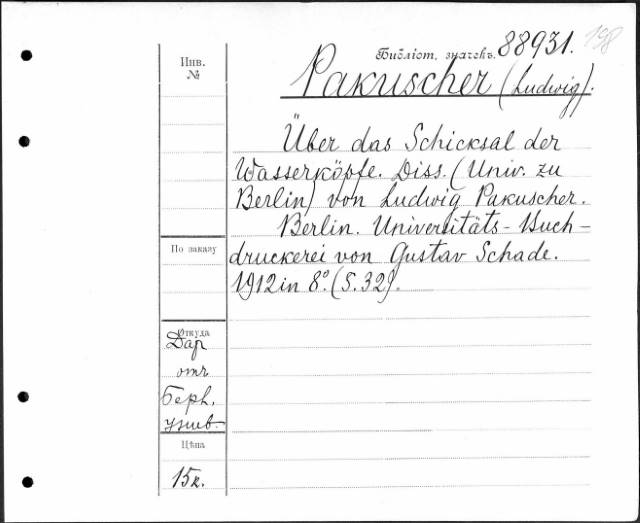 198
Библіот. значекъ. 88931.
Инв.
№
Pakuscher (Ludwig).
Über das Schicksal der
Wasserköpfe. Diss. (Univ. zu
Berlin) von Ludwig Pakuscher.
Berlin. Universitäts-Buch-
druckerei von Gustav Schade.
1912 in 8º. (S. 32).
По заказу
Откуда
Даръ
отъ
Берл.
унив.
Цѣна
15к.